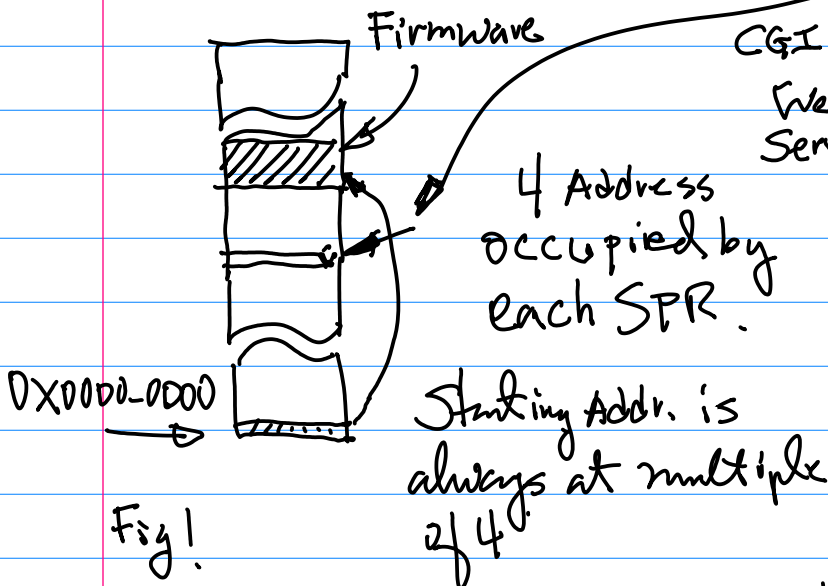 Firmware
CGI
We
Serv
4 Address
occupied by
each SPR.
0X0000-0000
Starting Addr. is
always at multiple
of 4
Fig1